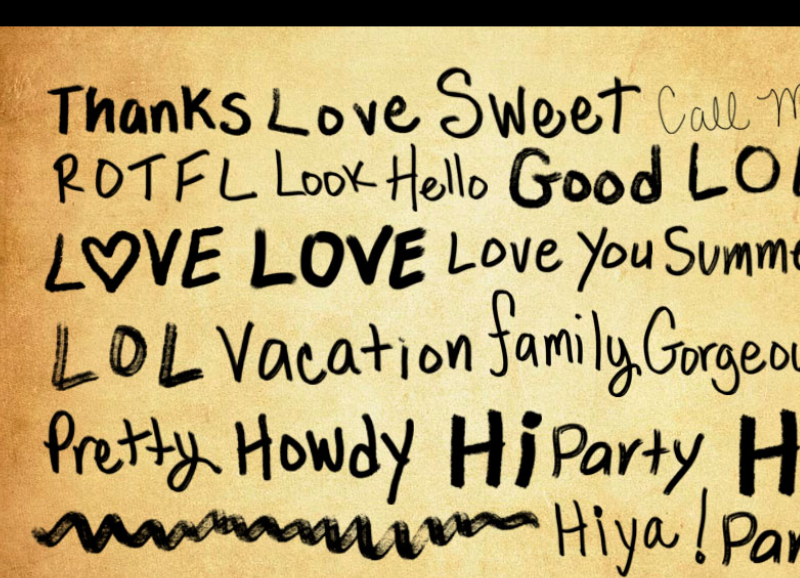 Thanks Love Sweet Call
ROTFL Look Hello Good LOL
L♡VE LOVE Love You
LOL Vacation family
Pretty Howdy Hi Party
Hiya!